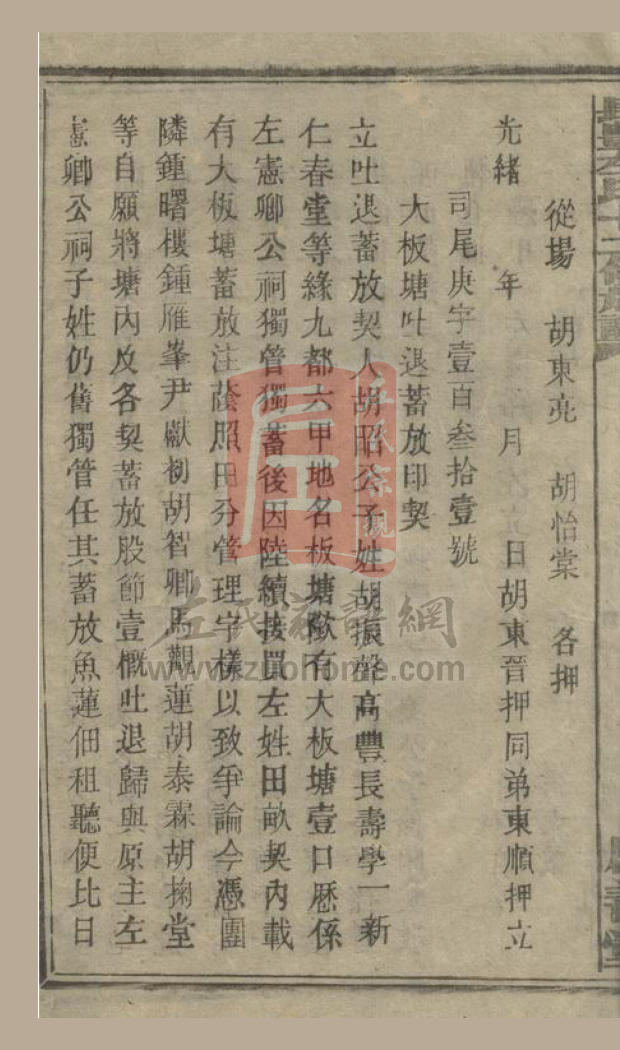 從場 胡東亮 胡怡棠 各押
光緒 年 月 日胡東晉押同弟東順押立
司尾庚字壹百叁拾壹號
大板塘吐退蓄放印契
立吐退蓄放契人胡昭公子姓胡振聲高豐長壽學一新
仁春堂等緣九都六甲地名板塘歇有大板塘壹口歷係
左憲卿公祠獨管獨蓄後因陸續接買左姓田畝契內載
有大板塘蓄放注蔭照田分管理字樣以致爭論今憑團
隣鍾曙樓鍾雁峯尹獻初胡智卿馬觀蓮胡泰霖胡掬堂
等自願將塘內及各契蓄放股節壹概吐退歸與原主左
憲卿公祠子姓仍舊獨管任其蓄放魚蓮佃租聽便比日
左氏族譜網
www.zuohome.com